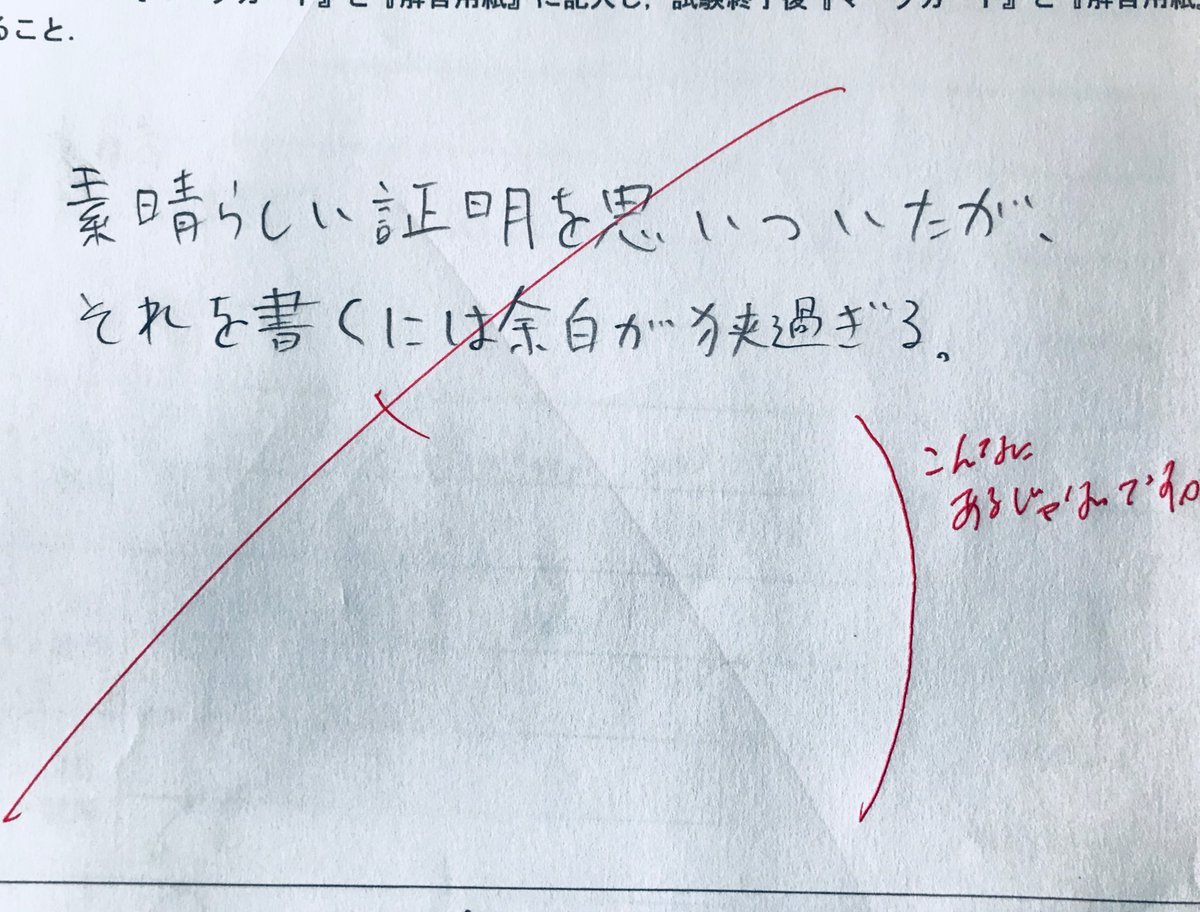 に記入し，試験終了後『マークカード』と『解答用紙』
ること．
素晴らしい証明を思いついたが、
それを書くには余白が狭過ぎる。
こんなに
あるじゃないですか